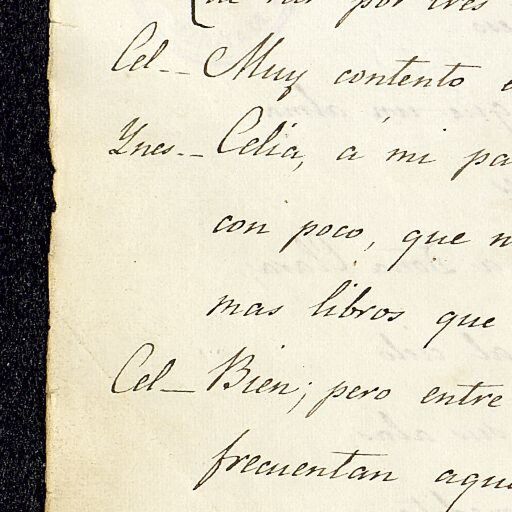 por tres
Cel-- Muy contento
Ynes-- Celia, á mi pa
con poco, que
mas libros que
Cel— Bien; pero entre
frecuentan aqu